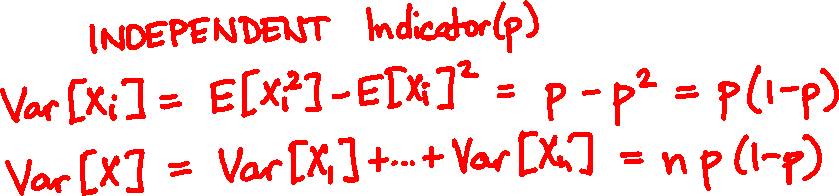 INDEPENDENT Indicator(p)
Var[Xᵢ] = E[Xᵢ²] - E[Xᵢ]² = p - p² = p(1-p)
Var[X] = Var[X₁] +...+ Var[Xₙ] = np(1-p)